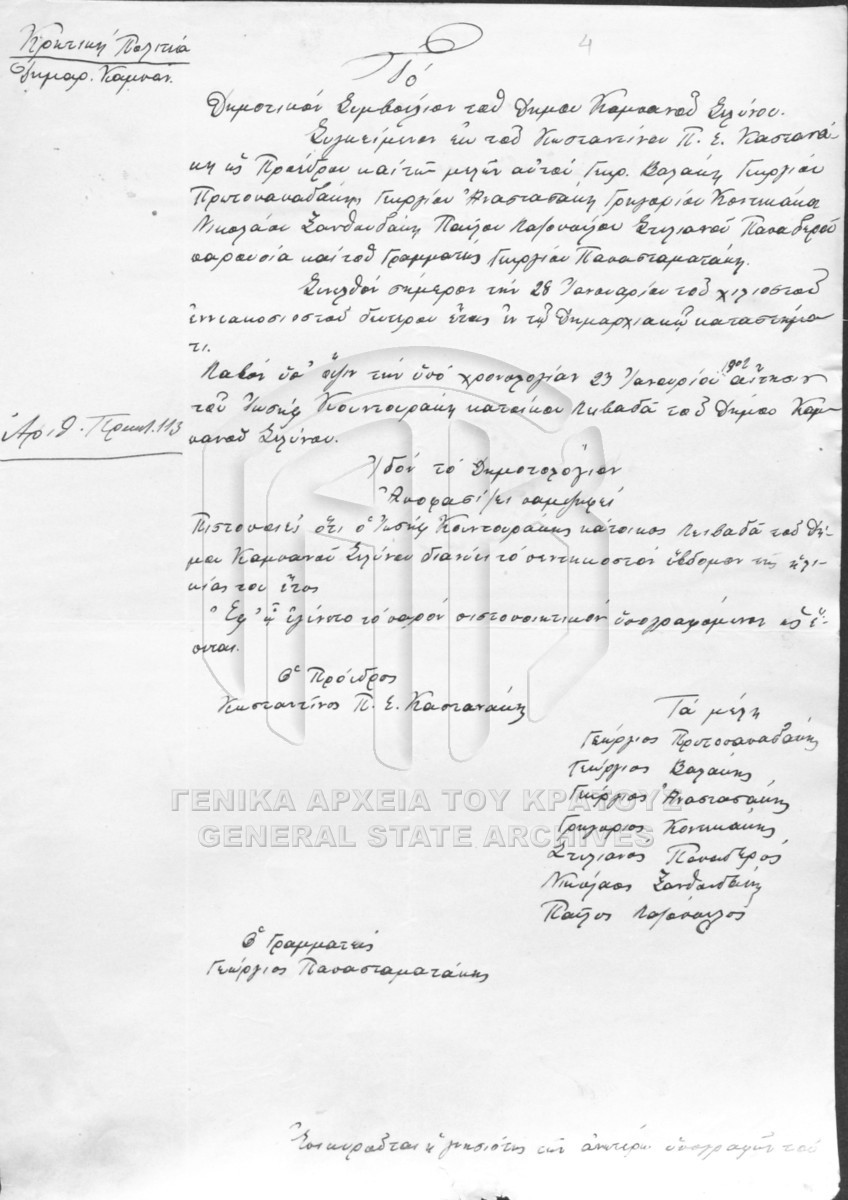 4
Κρητική Πολιτεία
Δημαρ. Καμπαν.
Τό
Δημοτικόν Συμβούλιον τοῦ Δήμου Καμπανοῦ Σελύνου.
Συγκείμενον ἐκ τοῦ Κωσταντίνου Π. Ε. Καστανά
κη ὡς Προέδρου καί τῶν μελῶν αὐτοῦ Γεωρ. Βαλάκη Γεωργίου
Πρωτοπαπαδάκη Γεωργίου Ἀναστασάκη Γρηγορίου Κοντικάκη
Νικολάου Ξανθουδάκη Παύλου Λαζοπούλου Στιλιανοῦ Παπαδερού
παρουσία καί τοῦ Γραμματέως Γεωργίου Παπασταματάκη.
Συνελθόν σήμερον τήν 28 Ἰανουαρίου τοῦ χιλιοστοῦ
ἐννεακοσιοστοῦ δευτέρου ἔτους ἐν τῷ Δημαρχιακῷ καταστήμα
τι.
Λαβόν ὑπ' ὄψιν τήν ὑπό χρονολογίαν 23 Ἰανουρίου 1902 αἴτησιν
τοῦ Ἰωσήφ Κουντουράκη κατοίκου Λειβαδᾶ τοῦ Δήμου Καμ-
πανοῦ Σελύνου.
Ἀριθ. Πρακτ. 113
Ἰδόν τό Δημοτολόγιον
Ἀποφασίζει παμψηφεί
Πιστοποιεῖ ὅτι ὁ Ἰωσήφ Κουντουράκης κάτοικος Λειβαδᾶ τοῦ Δή-
μου Καμπανοῦ Σελύνου διανύει τό πεντηκοστόν ἕβδομον τῆς ἡλι-
κίας του ἔτος
Ἐφ' ᾧ ἐγένετο τό παρόν πιστοποιητικόν ὑπογραφόμενον ὡς ἕ-
πεται.
Ὁ Πρόεδρος
Κωσταντῖνος Π. Ε. Καστανάκης
Τά μέλη
Γεώργιος Πρωτοπαπαδάκης
Γεώργιος Βαλάκης
Γεώργιος Ἀναστασάκης
Γρηγόριος Κοντικάκης
Στιλιανος Παπαδερός
Νικόλαος Ξανθουδάκης
Παῦλος Λαζόπουλος
Ὁ Γραμματεύς
Γεώργιος Παπασταματάκης
ΓΕΝΙΚΑ ΑΡΧΕΙΑ ΤΟΥ ΚΡΑΤΟΥΣ
GENERAL STATE ARCHIVES
Ἐπικυροῦται ἡ γνησιότης τῶν ἀνωτέρω ὑπογραφῶν τοῦ